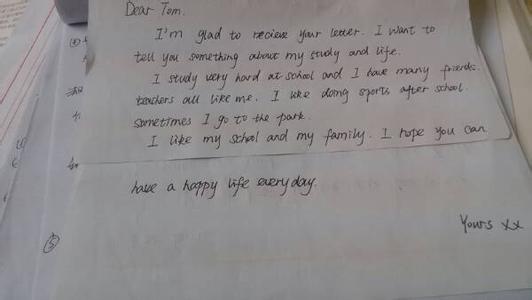 Dear Tom.
I'm glad to recieve your letter. I want to
tell you something about my study and life.
I study very hard at school and I have many friends.
teachers all like me. I like doing sports after school.
sometimes I go to the park.
I like my school and my family. I hope you can
have a happy life everyday.
Yours xx
⑤